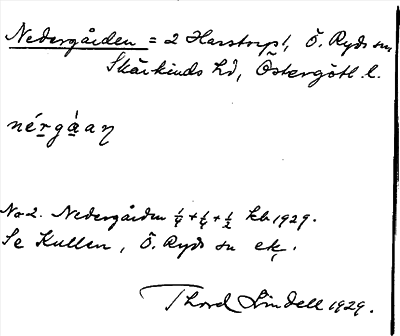 Nedergården = 2 Harstorp, Ö. Ryds sn
Skärkinds hd, Östergötl. l.
nérgàaη
No 2. Nedergården 1/4 + 1/4 + 1/2 kb. 1929.
Se Kullen, Ö. Ryds sn ek.
Thord Lindell 1929.